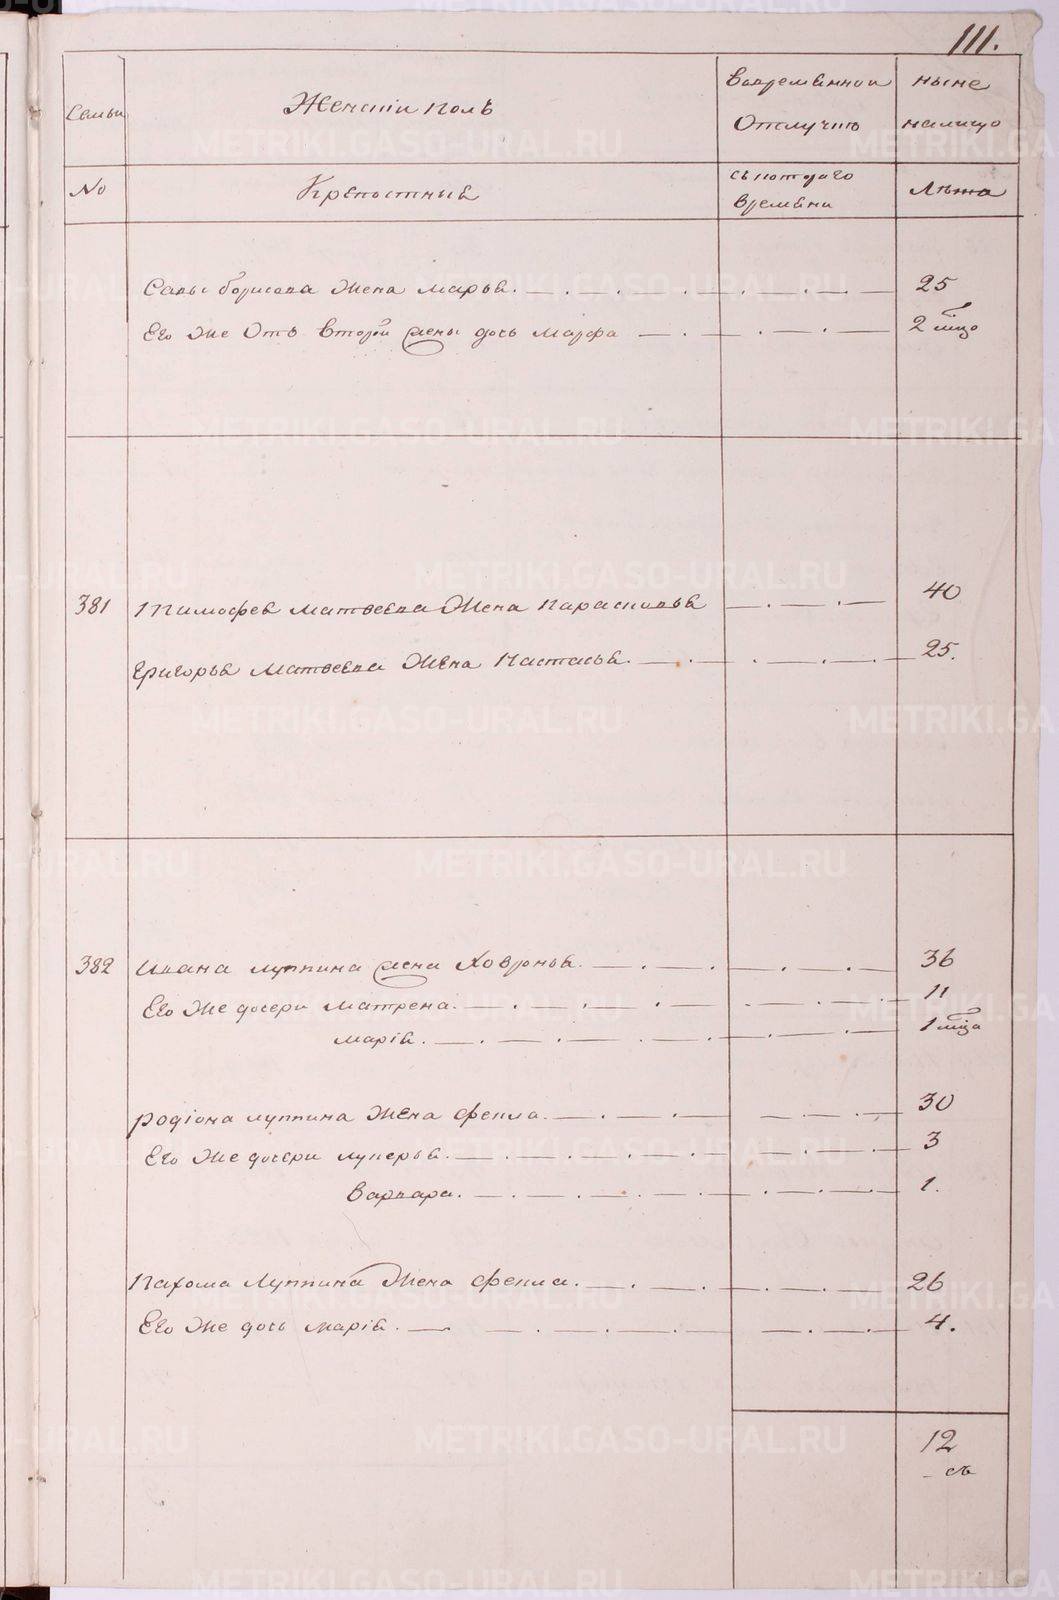 111.
Семьи
Женскiй полъ
Вовременной
Отлучкѣ
ныне
налицо
No
Крепостные
съ котораго
времени
Лѣта
Савы Борисова Жена марья. 25
Его Же Отъ Второй жены дочь Марфа 2 мѣца
381 Тимофея Матвеева Жена Парасковья 40
Григорья Матвеева Жена Настасья. 25.
382 Ивана Луппина жена Ховронья. 36
Его Же дочери Матрена. 11
марiя. 1 мѣца
Родiона Луппина Жена Фекла. 30
Его Же дочери лукерья. 3
Варвара. 1.
Пахома Луппина Жена Фекла. 26
Его Же дочь марiя. 4.
12
METRIKI.GASO-URAL.RU